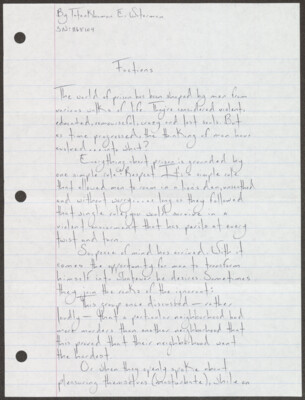 By Tutankhamun E. Silverman
Fictions
The world of prison has been shaped by men from
various walks of life. They're considered violent,
educated, remorseful, crazy and lost souls. But
as time progressed, the thinking of men have
evolved into what?
Everything about prison is grounded by
one simple rule: Respect. It's a simple rule
that allowed men to roam in a lions den, unscathed
and without worry as long as they followed
that single rule, you would survive in a
violent environment that lies perile at every
twist and turn.
Suspense of mind has arrived. With it
comes the opportunity for men to transform
himself into whatever he desires. Sometimes
they join the ranks of the ignorant:
This group once discussed - rather
loudly - that a particular neighborhood had
more murders than another neighborhood that
this proved that their neighborhood went
the hardest.
Or when they openly spoke about
pleasuring themselves (masturbate), while on